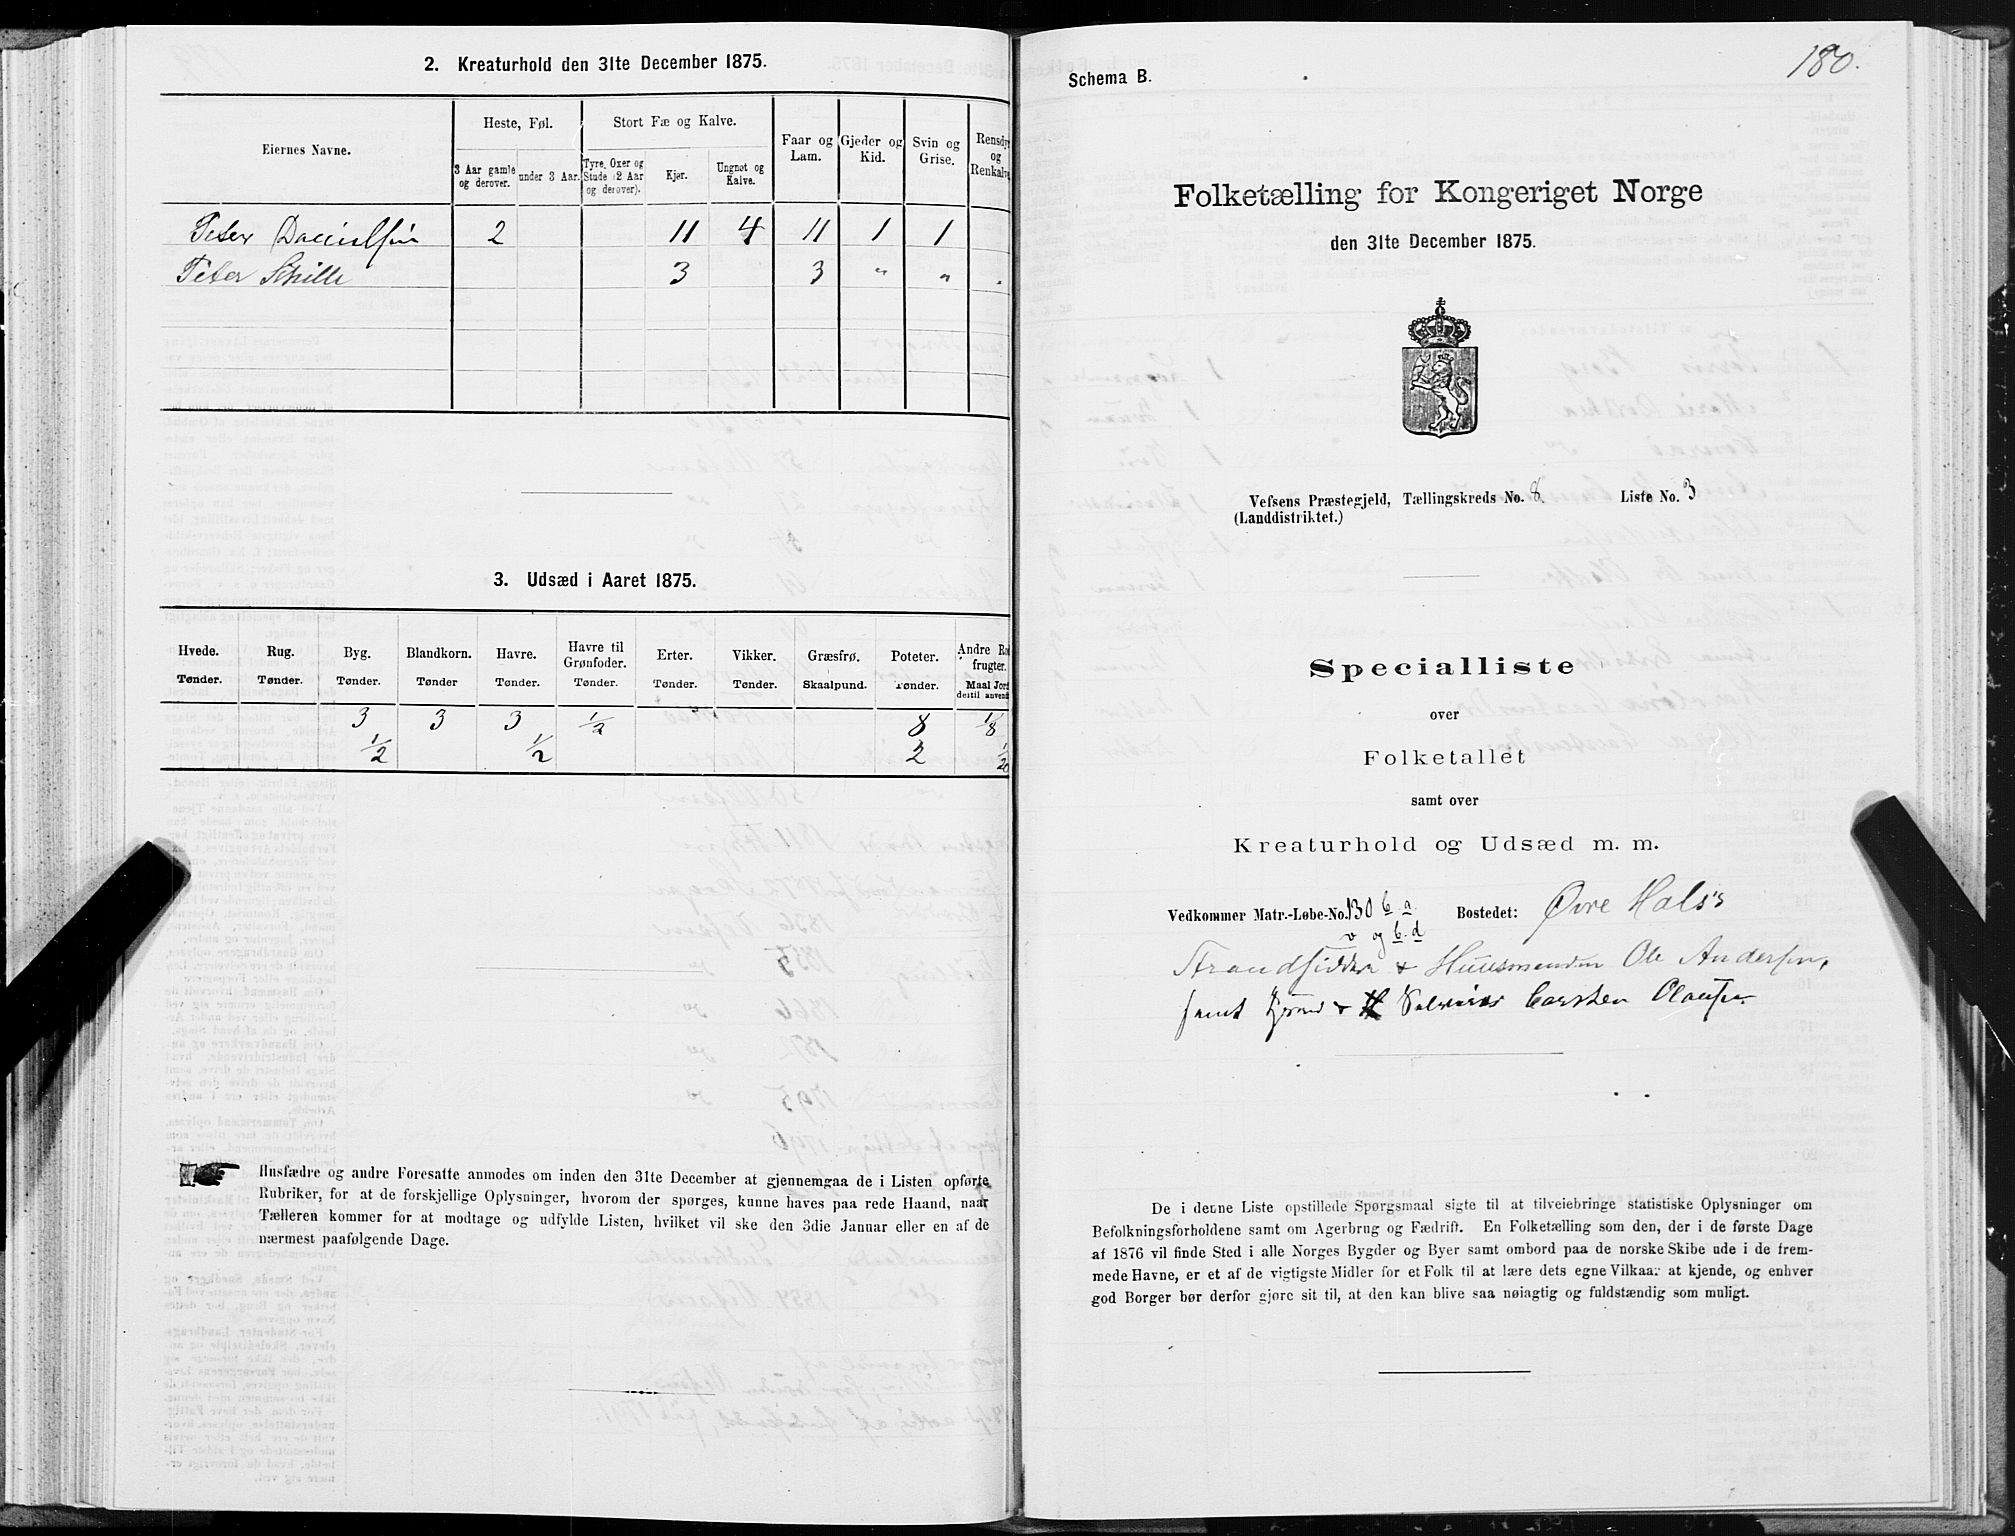 2. Kreaturhold den 31te December 1875.
Eiernes Navne.
Heste, Føl.
3 Aar gamle og derover.
under 3 Aar.
Stort Fæ og Kalve.
Tyre, Oxer og Stude (2 Aar og derover).
Kjør.
Ungnøt og Kalve.
Faar og Lam.
Gjeder og Kid.
Svin og Grise.
Rensdyr og Renkalve
Peter Danielsen 2 11 4 11 1 1
Peter Schille 3 3 " " "
3. Udsæd i Aaret 1875.
Hvede. Rug. Byg. Blandkorn. Havre. Havre til Grønfoder. Erter. Vikker. Græsfrø. Poteter. Andre Ro frugter.
Tønder. Tønder. Tønder. Tønder Tønder. Tønder. Tønder. Tønder. Skaalpund. Tønder. Maal Jord dertil anvendt
3 3 3 1/2 8 1/8
1/2 1/2 2 1/20
Husfædre og andre Foresatte anmodes om inden den 31te December at gjennemgaa de i Listen opførte
Rubriker, for at de forskjellige Oplysninger, hvorom der spørges, kunne haves paa rede Haand, naar
Tælleren kommer for at modtage og udfylde Listen, hvilket vil ske den 3die Januar eller en af de
nærmest paafølgende Dage.
180.
Schema B.
Folketælling for Kongeriget Norge
den 31te December 1875.
Vefsens Præstegjeld, Tællingskreds No. 8. Liste No. 3
(Landdistriktet.)
Specialliste
over
Folketallet
samt over
Kreaturhold og Udsæd m. m.
Vedkommer Matr.-Løbe-No. 130 b a. Bostedet: Øvre Hals's
og b. d
Strandsidder + Huusmanden Ole Andersen,
samt Carsten Olausen
De i denne Liste opstillede Spørgsmaal sigte til at tilveiebringe statistiske Oplysninger om
Befolkningsforholdene samt om Agerbrug og Fædrift. En Folketælling som den, der i de første Dage
af 1876 vil finde Sted i alle Norges Bygder og Byer samt ombord paa de norske Skibe ude i de frem-
mede Havne, er et af de vigtigste Midler for et Folk til at lære dets egne Vilkaar at kjende, og enhver
god Borger bør derfor gjøre sit til, at den kan blive saa nøiagtig og fuldstændig som muligt.